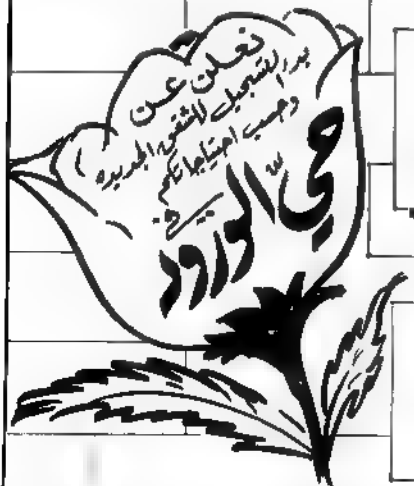 نعلن عن
بدء التسجيل للشقق الجديده
وحسب احتياجاتكم
في
حي الورود